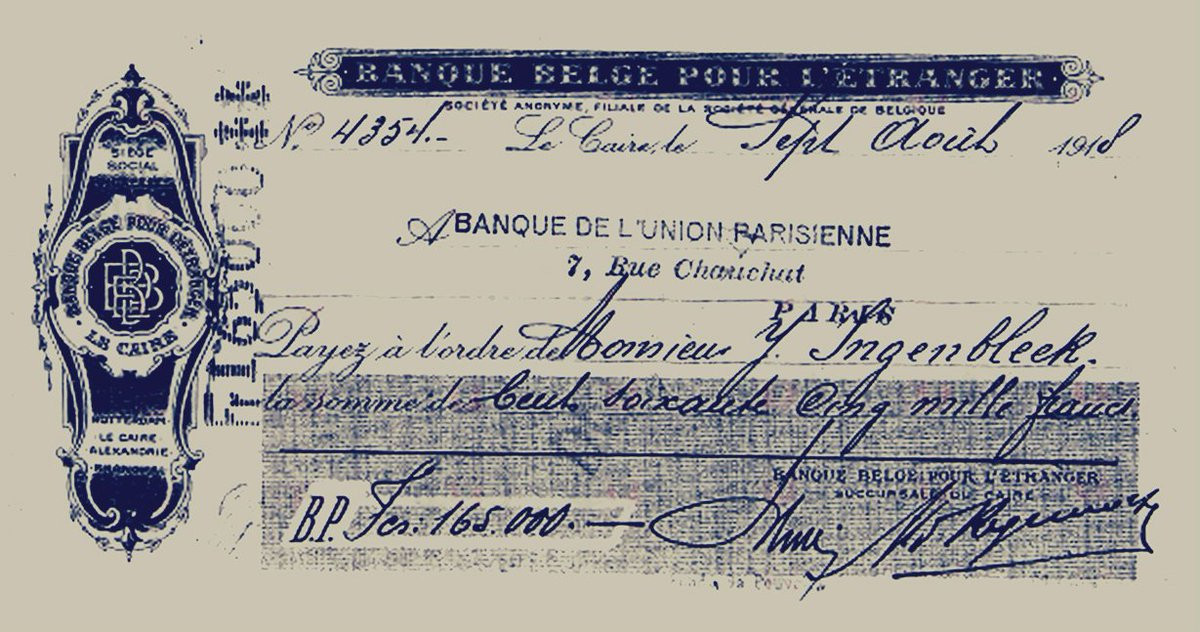 BANQUE BELGE POUR L'ÉTRANGER
SOCIÉTÉ ANONYME, FILIALE DE LA SOCIÉTÉ GÉNÉRALE DE BELGIQUE
No 4354.- Le Caire, le Sept Août 1918
A BANQUE DE L'UNION PARISIENNE
7, Rue Chauchat
PARIS
Payez à l'ordre de Monsieur J. Ingenbleek.
la somme de Cent soixante Cinq mille francs
BANQUE BELGE POUR L'ÉTRANGER
SUCCURSALE DU CAIRE
B.P. Fcs. 165.000.—
SIÈGE
SOCIAL
BANQUE BELGE POUR L'ÉTRANGER
BBE
LE CAIRE
ROTTERDAM
LE CAIRE
ALEXANDRIE